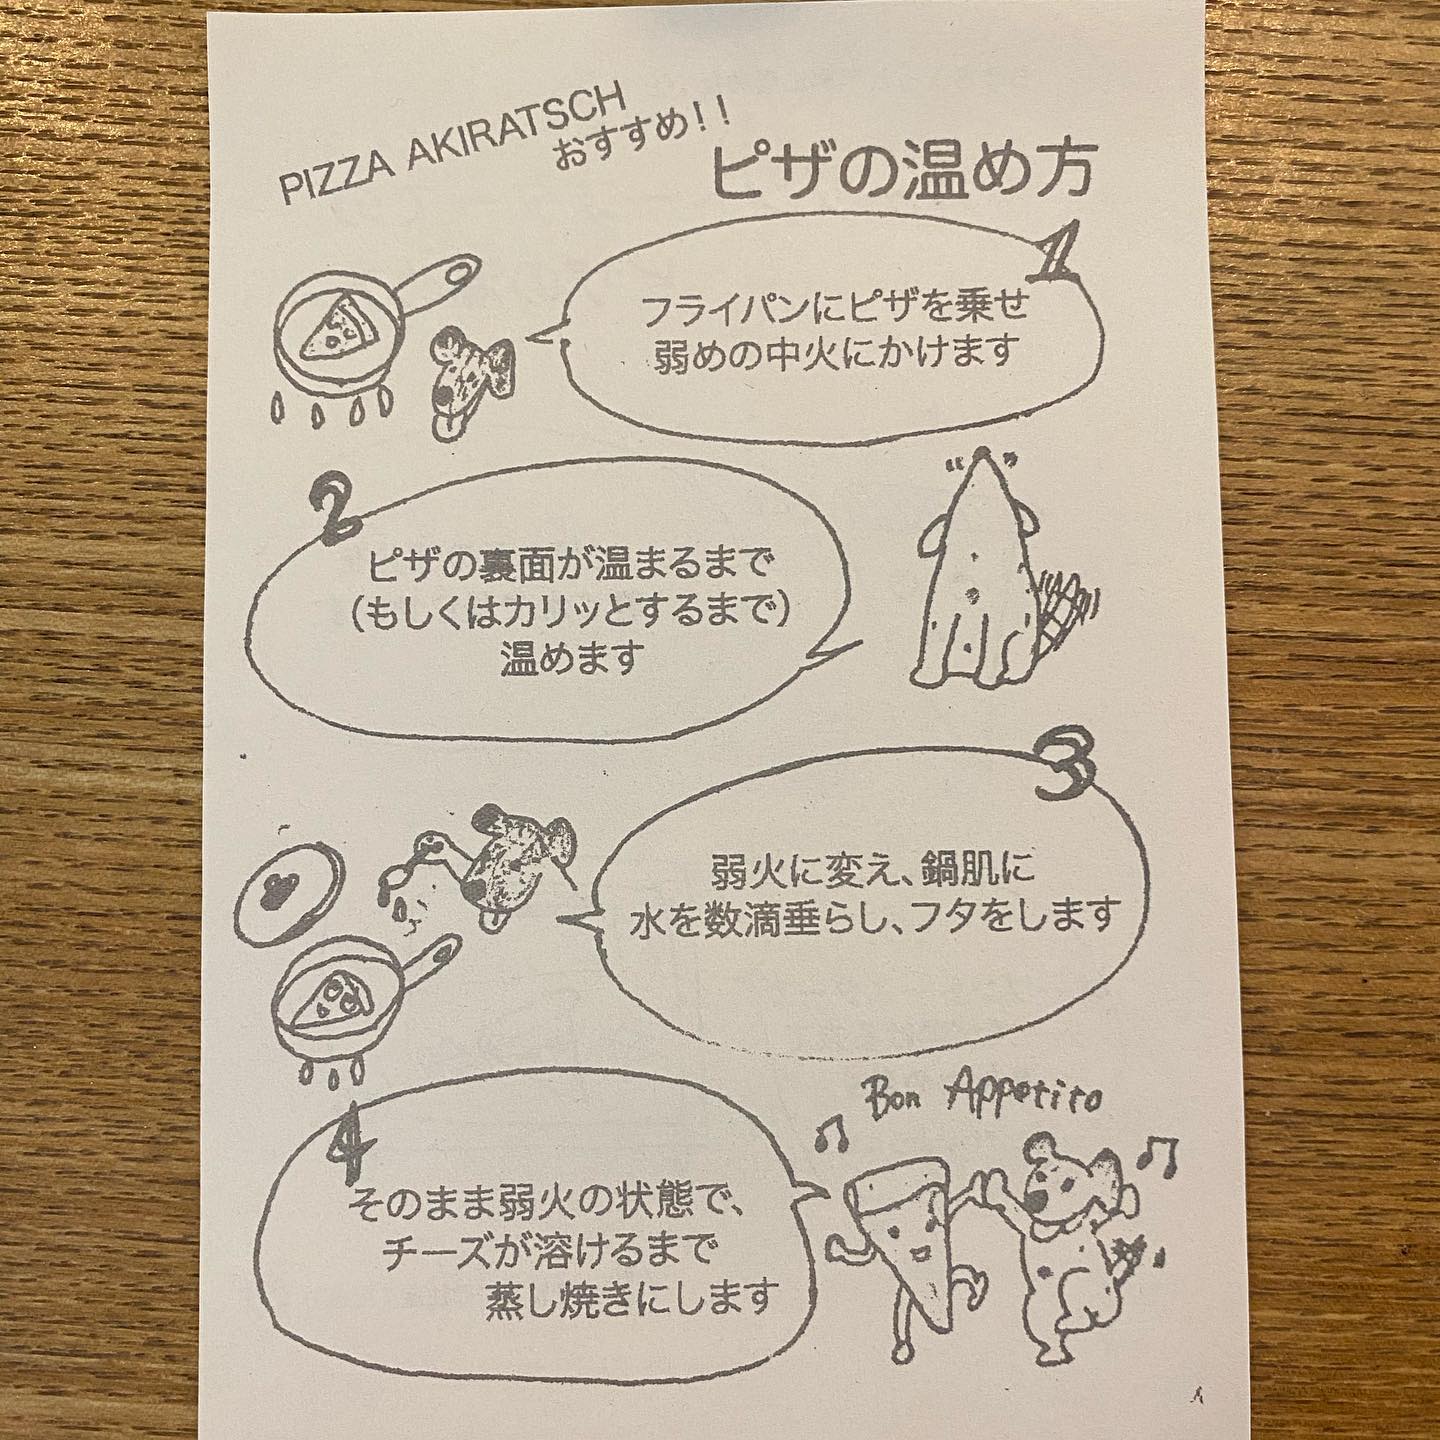 PIZZA AKIRATSCH
おすすめ!!
ピザの温め方
1
フライパンにピザを乗せ
弱めの中火にかけます
2
ピザの裏面が温まるまで
(もしくはカリッとするまで)
温めます
3
弱火に変え、鍋肌に
水を数滴垂らし、フタをします
4
そのまま弱火の状態で、
チーズが溶けるまで
蒸し焼きにします
Bon Appetito